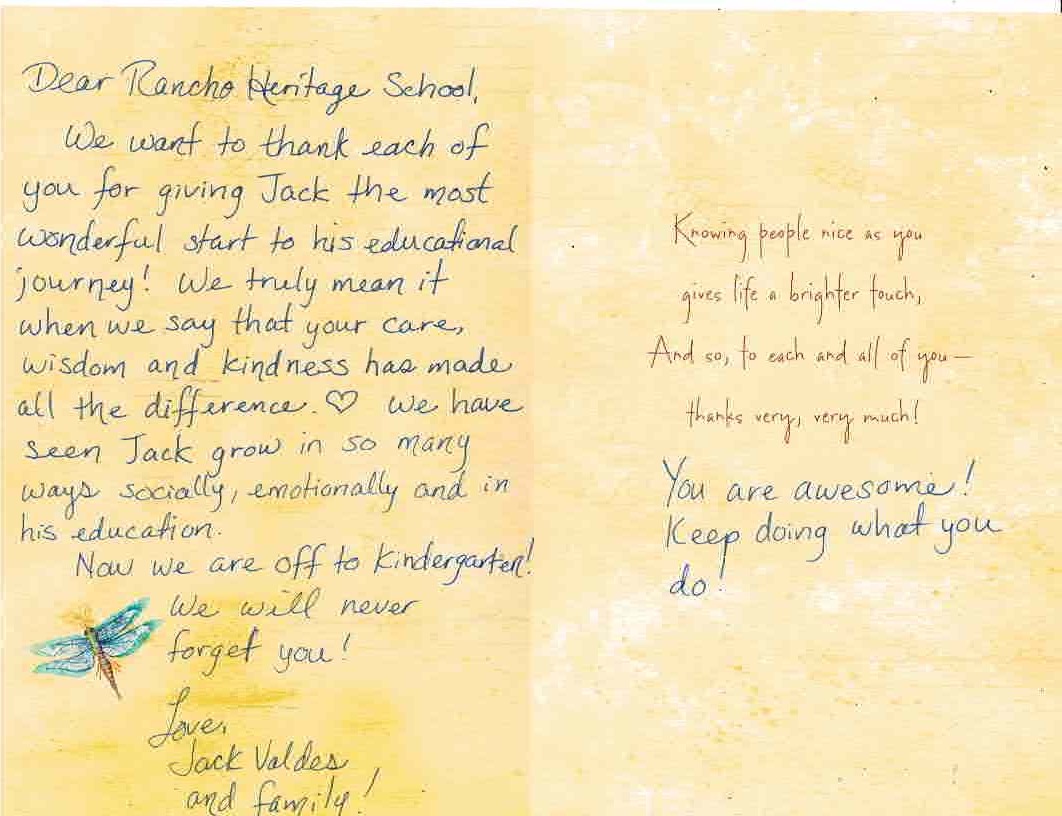 Dear Rancho Heritage School,
We want to thank each of
you for giving Jack the most
wonderful start to his educational
journey! We truly mean it
when we say that your care,
wisdom and kindness has made
all the difference. ♡ We have
seen Jack grow in so many
ways socially, emotionally and in
his education.
Now we are off to Kindergarten!
We will never
forget you!
Love,
Jack Valdes
and family!
Knowing people nice as you
gives life a brighter touch,
And so, to each and all of you—
thanks very, very much!
You are awesome!
Keep doing what you
do!